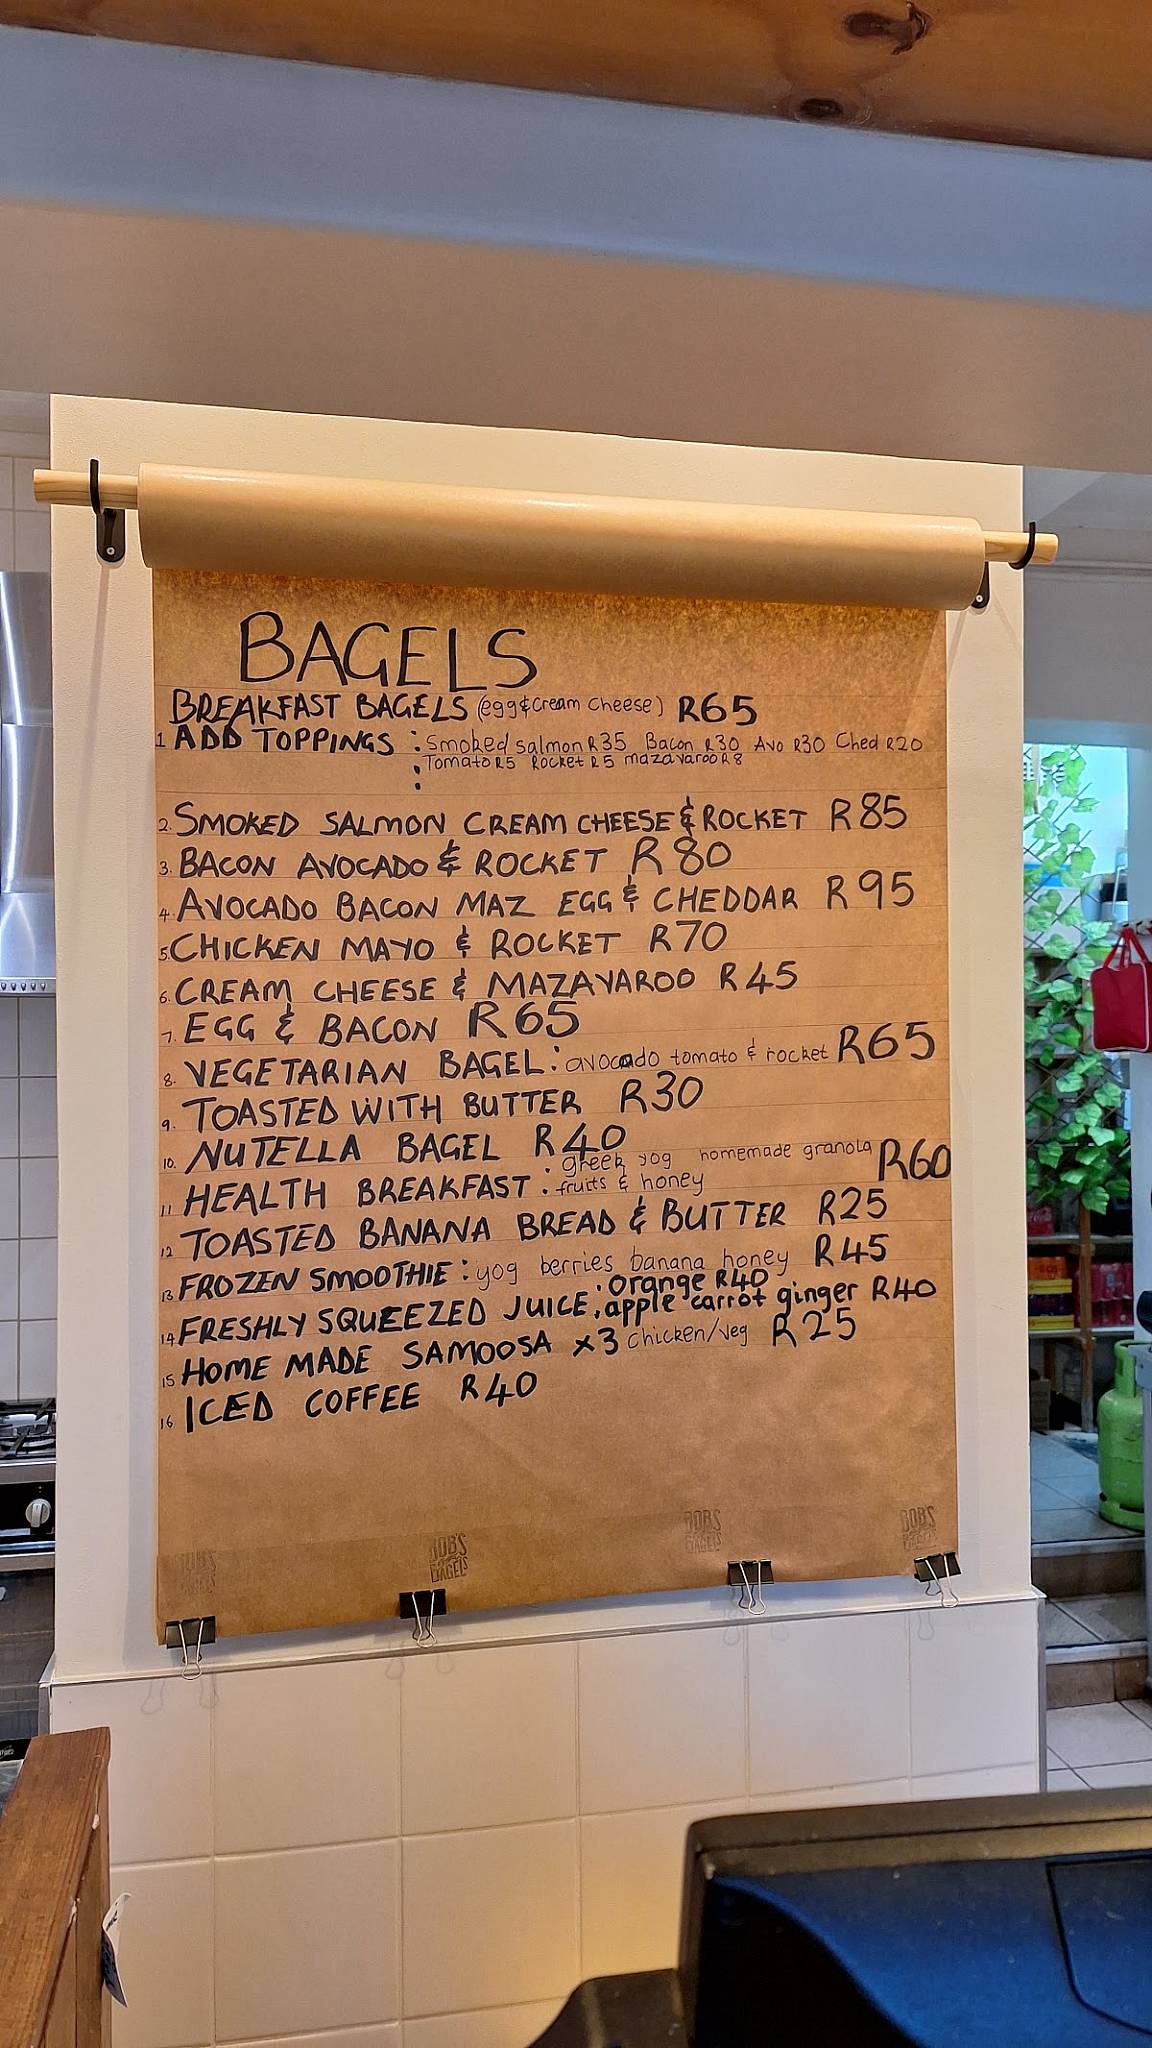 BAGELS
BREAKFAST BAGELS (egg & cream cheese) R65
1 ADD TOPPINGS : Smoked salmon R35 Bacon R30 Avo R30 Ched R20
: Tomato R5 Rocket R5 mazavaroo R8
2. SMOKED SALMON CREAM CHEESE & ROCKET R85
3. BACON AVOCADO & ROCKET R80
4. AVOCADO BACON MAZ EGG & CHEDDAR R95
5. CHICKEN MAYO & ROCKET R70
6. CREAM CHEESE & MAZAVAROO R45
7. EGG & BACON R65
8. VEGETARIAN BAGEL : avocado tomato & rocket R65
9. TOASTED WITH BUTTER R30
10. NUTELLA BAGEL R40
11 HEALTH BREAKFAST : greek yog homemade granola R60
fruits & honey
12 TOASTED BANANA BREAD & BUTTER R25
13 FROZEN SMOOTHIE : yog berries banana honey R45
14 FRESHLY SQUEEZED JUICE : orange R40
apple carrot ginger R40
15 HOME MADE SAMOOSA x3 chicken/veg R25
16 ICED COFFEE R40
BOB'S BAGELS
BOB'S BAGELS
BOB'S BAGELS
BOB'S BAGELS